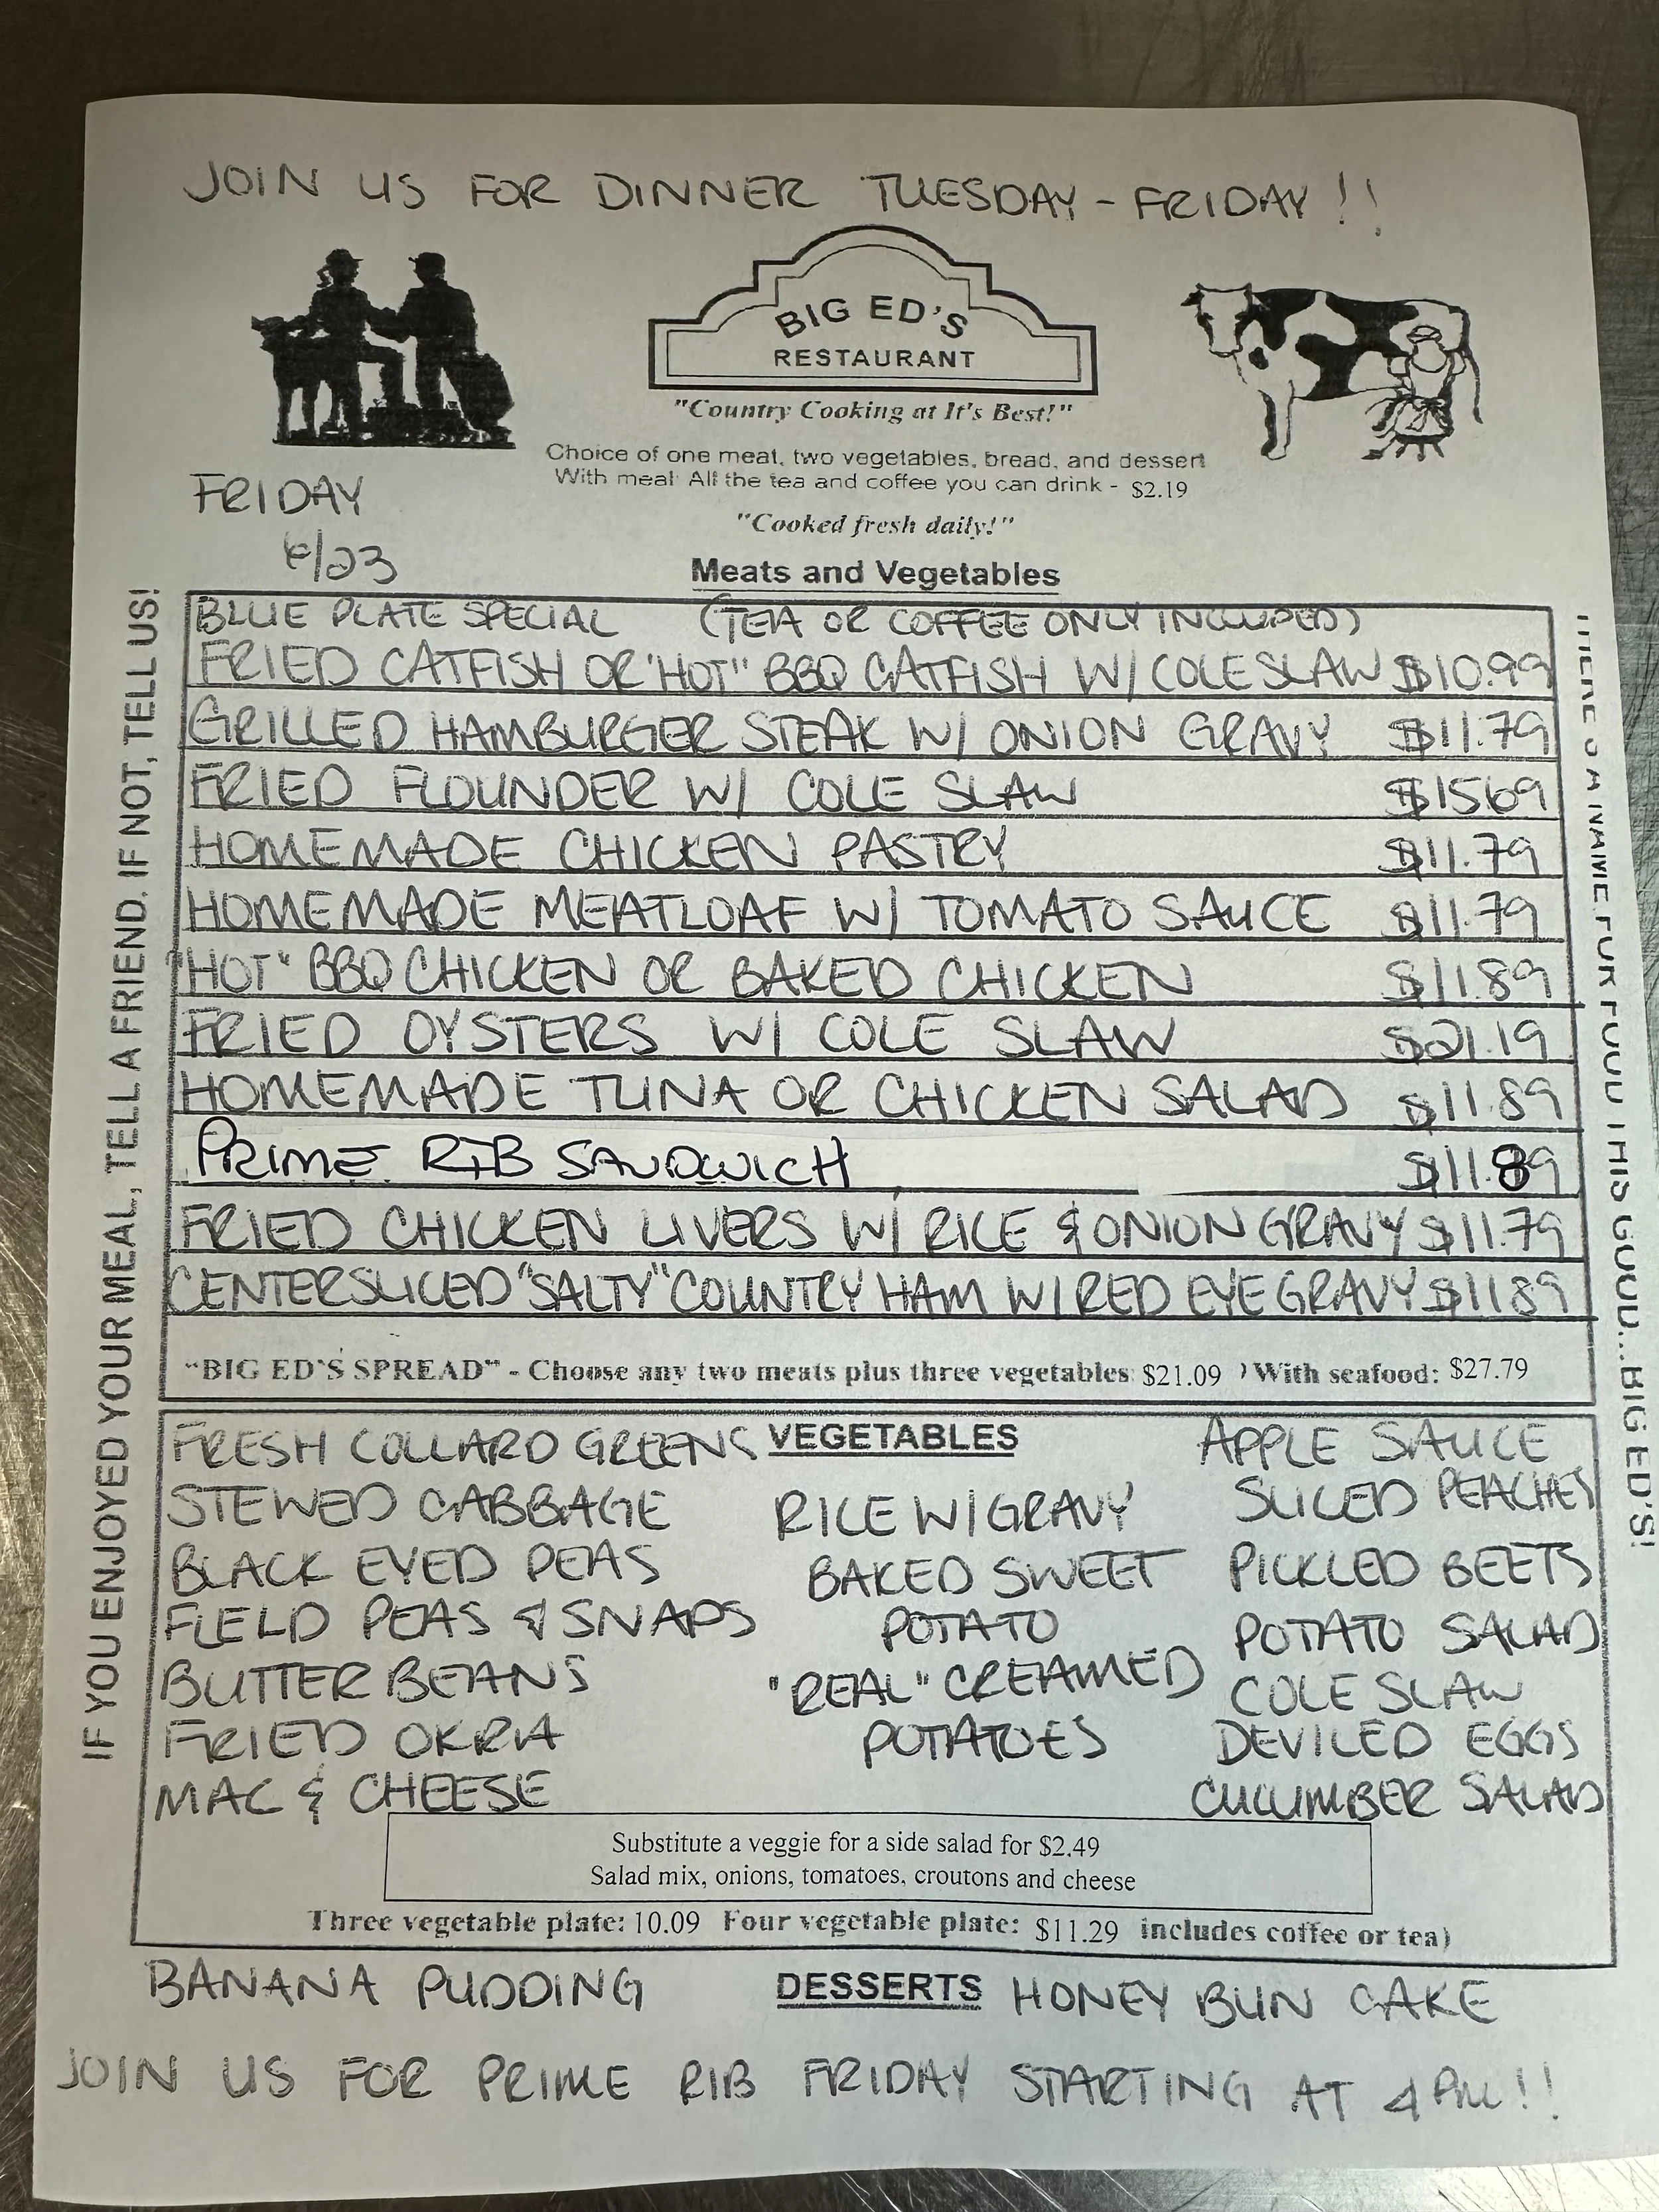 JOIN US FOR DINNER TUESDAY - FRIDAY!!
BIG ED'S
RESTAURANT
"Country Cooking at It's Best!"
Choice of one meat, two vegetables, bread, and dessert
With meal: All the tea and coffee you can drink - $2.19
FRIDAY
6/23
"Cooked fresh daily!"
Meats and Vegetables
BLUE PLATE SPECIAL (TEA OR COFFEE ONLY INCLUDED)
FRIED CATFISH OR "HOT" BBQ CATFISH W/ COLE SLAW $10.99
GRILLED HAMBURGER STEAK W/ ONION GRAVY $11.79
FRIED FLOUNDER W/ COLE SLAW $15.69
HOMEMADE CHICKEN PASTRY $11.79
HOMEMADE MEATLOAF W/ TOMATO SAUCE $11.79
"HOT" BBQ CHICKEN OR BAKED CHICKEN $11.89
FRIED OYSTERS W/ COLE SLAW $21.19
HOMEMADE TUNA OR CHICKEN SALAD $11.89
PRIME RIB SANDWICH $11.89
FRIED CHICKEN LIVERS W/ RICE & ONION GRAVY $11.79
CENTER SLICED "SALTY" COUNTRY HAM W/ RED EYE GRAVY $11.89
"BIG ED'S SPREAD" - Choose any two meats plus three vegetables: $21.09 ) With seafood: $27.79
VEGETABLES
FRESH COLLARD GREENS
STEWED CABBAGE
BLACK EYED PEAS
FIELD PEAS & SNAPS
BUTTER BEANS
FRIED OKRA
MAC & CHEESE
RICE W/ GRAVY
BAKED SWEET
POTATO
"REAL" CREAMED
POTATOES
APPLE SAUCE
SLICED PEACHES
PICKLED BEETS
POTATO SALAD
COLE SLAW
DEVILED EGGS
CUCUMBER SALAD
Substitute a veggie for a side salad for $2.49
Salad mix, onions, tomatoes, croutons and cheese
Three vegetable plate: 10.09 Four vegetable plate: $11.29 includes coffee or tea)
BANANA PUDDING DESSERTS HONEY BUN CAKE
JOIN US FOR PRIME RIB FRIDAY STARTING AT 4 PM!!
IF YOU ENJOYED YOUR MEAL, TELL A FRIEND. IF NOT, TELL US!
THERE'S A NAME FOR FOOD THIS GOOD...BIG ED'S!